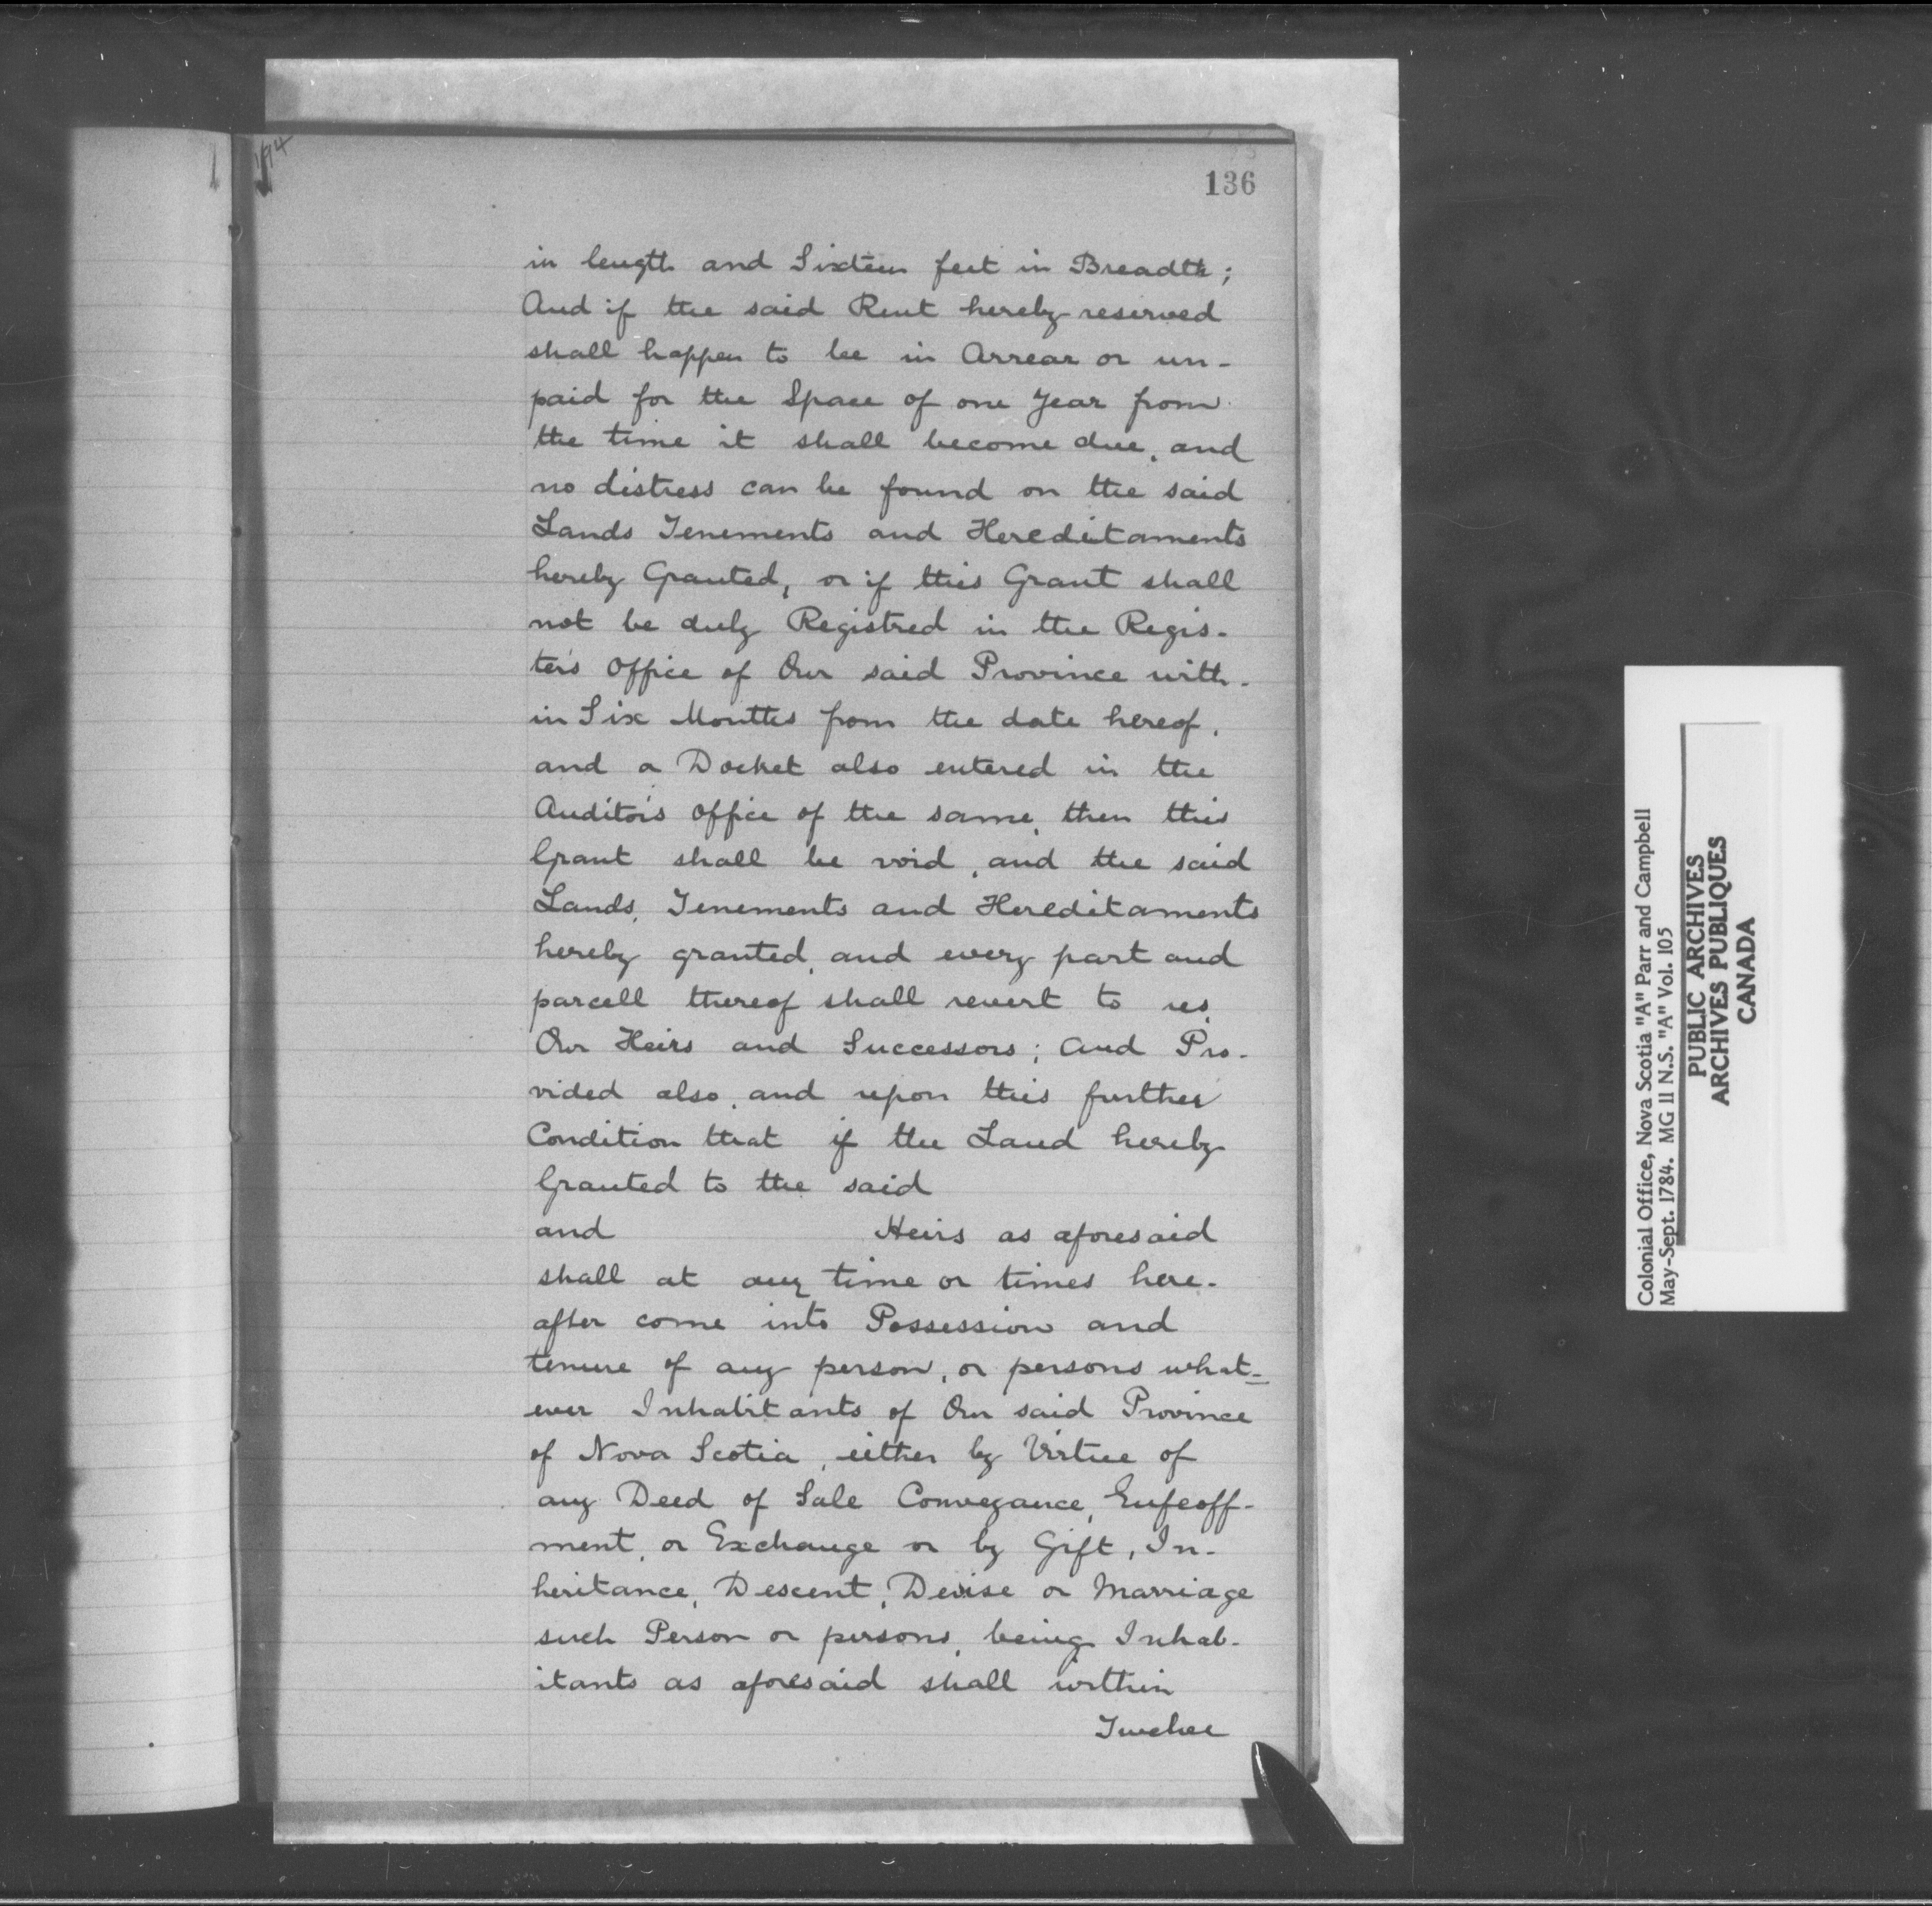 136
in length and Sixteen feet in Breadth;
And if the said Rent hereby reserved
shall happen to be in Arrear or un-
paid for the Space of one Year from
the time it shall become due, and
no distress can be found on the said
Lands Tenements and Hereditaments
hereby Granted, or if this Grant shall
not be duly Registred in the Regis-
ter's Office of Our said Province with-
in Six Months from the date hereof,
and a Docket also entered in the
Auditor's Office of the same, then this
Grant shall be void, and the said
Lands, Tenements and Hereditaments
hereby granted, and every part and
parcell thereof shall revert to us,
Our Heirs and Successors; And Pro-
vided also, and upon this further
Condition that if the Land hereby
Granted to the said
and Heirs as aforesaid
shall at any time or times here-
after come into Possession and
tenure of any person, or persons what-
ever Inhabitants of Our said Province
of Nova Scotia, either by Virtue of
any Deed of Sale Conveyance, Enfeoff-
ment, or Exchange or by Gift, In-
heritance, Descent, Devise or Marriage
such Person or persons, being Inhab-
itants as aforesaid shall within
Twelve
Colonial Office, Nova Scotia "A" Parr and Campbell
May-Sept. 1784. MG 11 N.S. "A" Vol. 105
PUBLIC ARCHIVES
ARCHIVES PUBLIQUES
CANADA